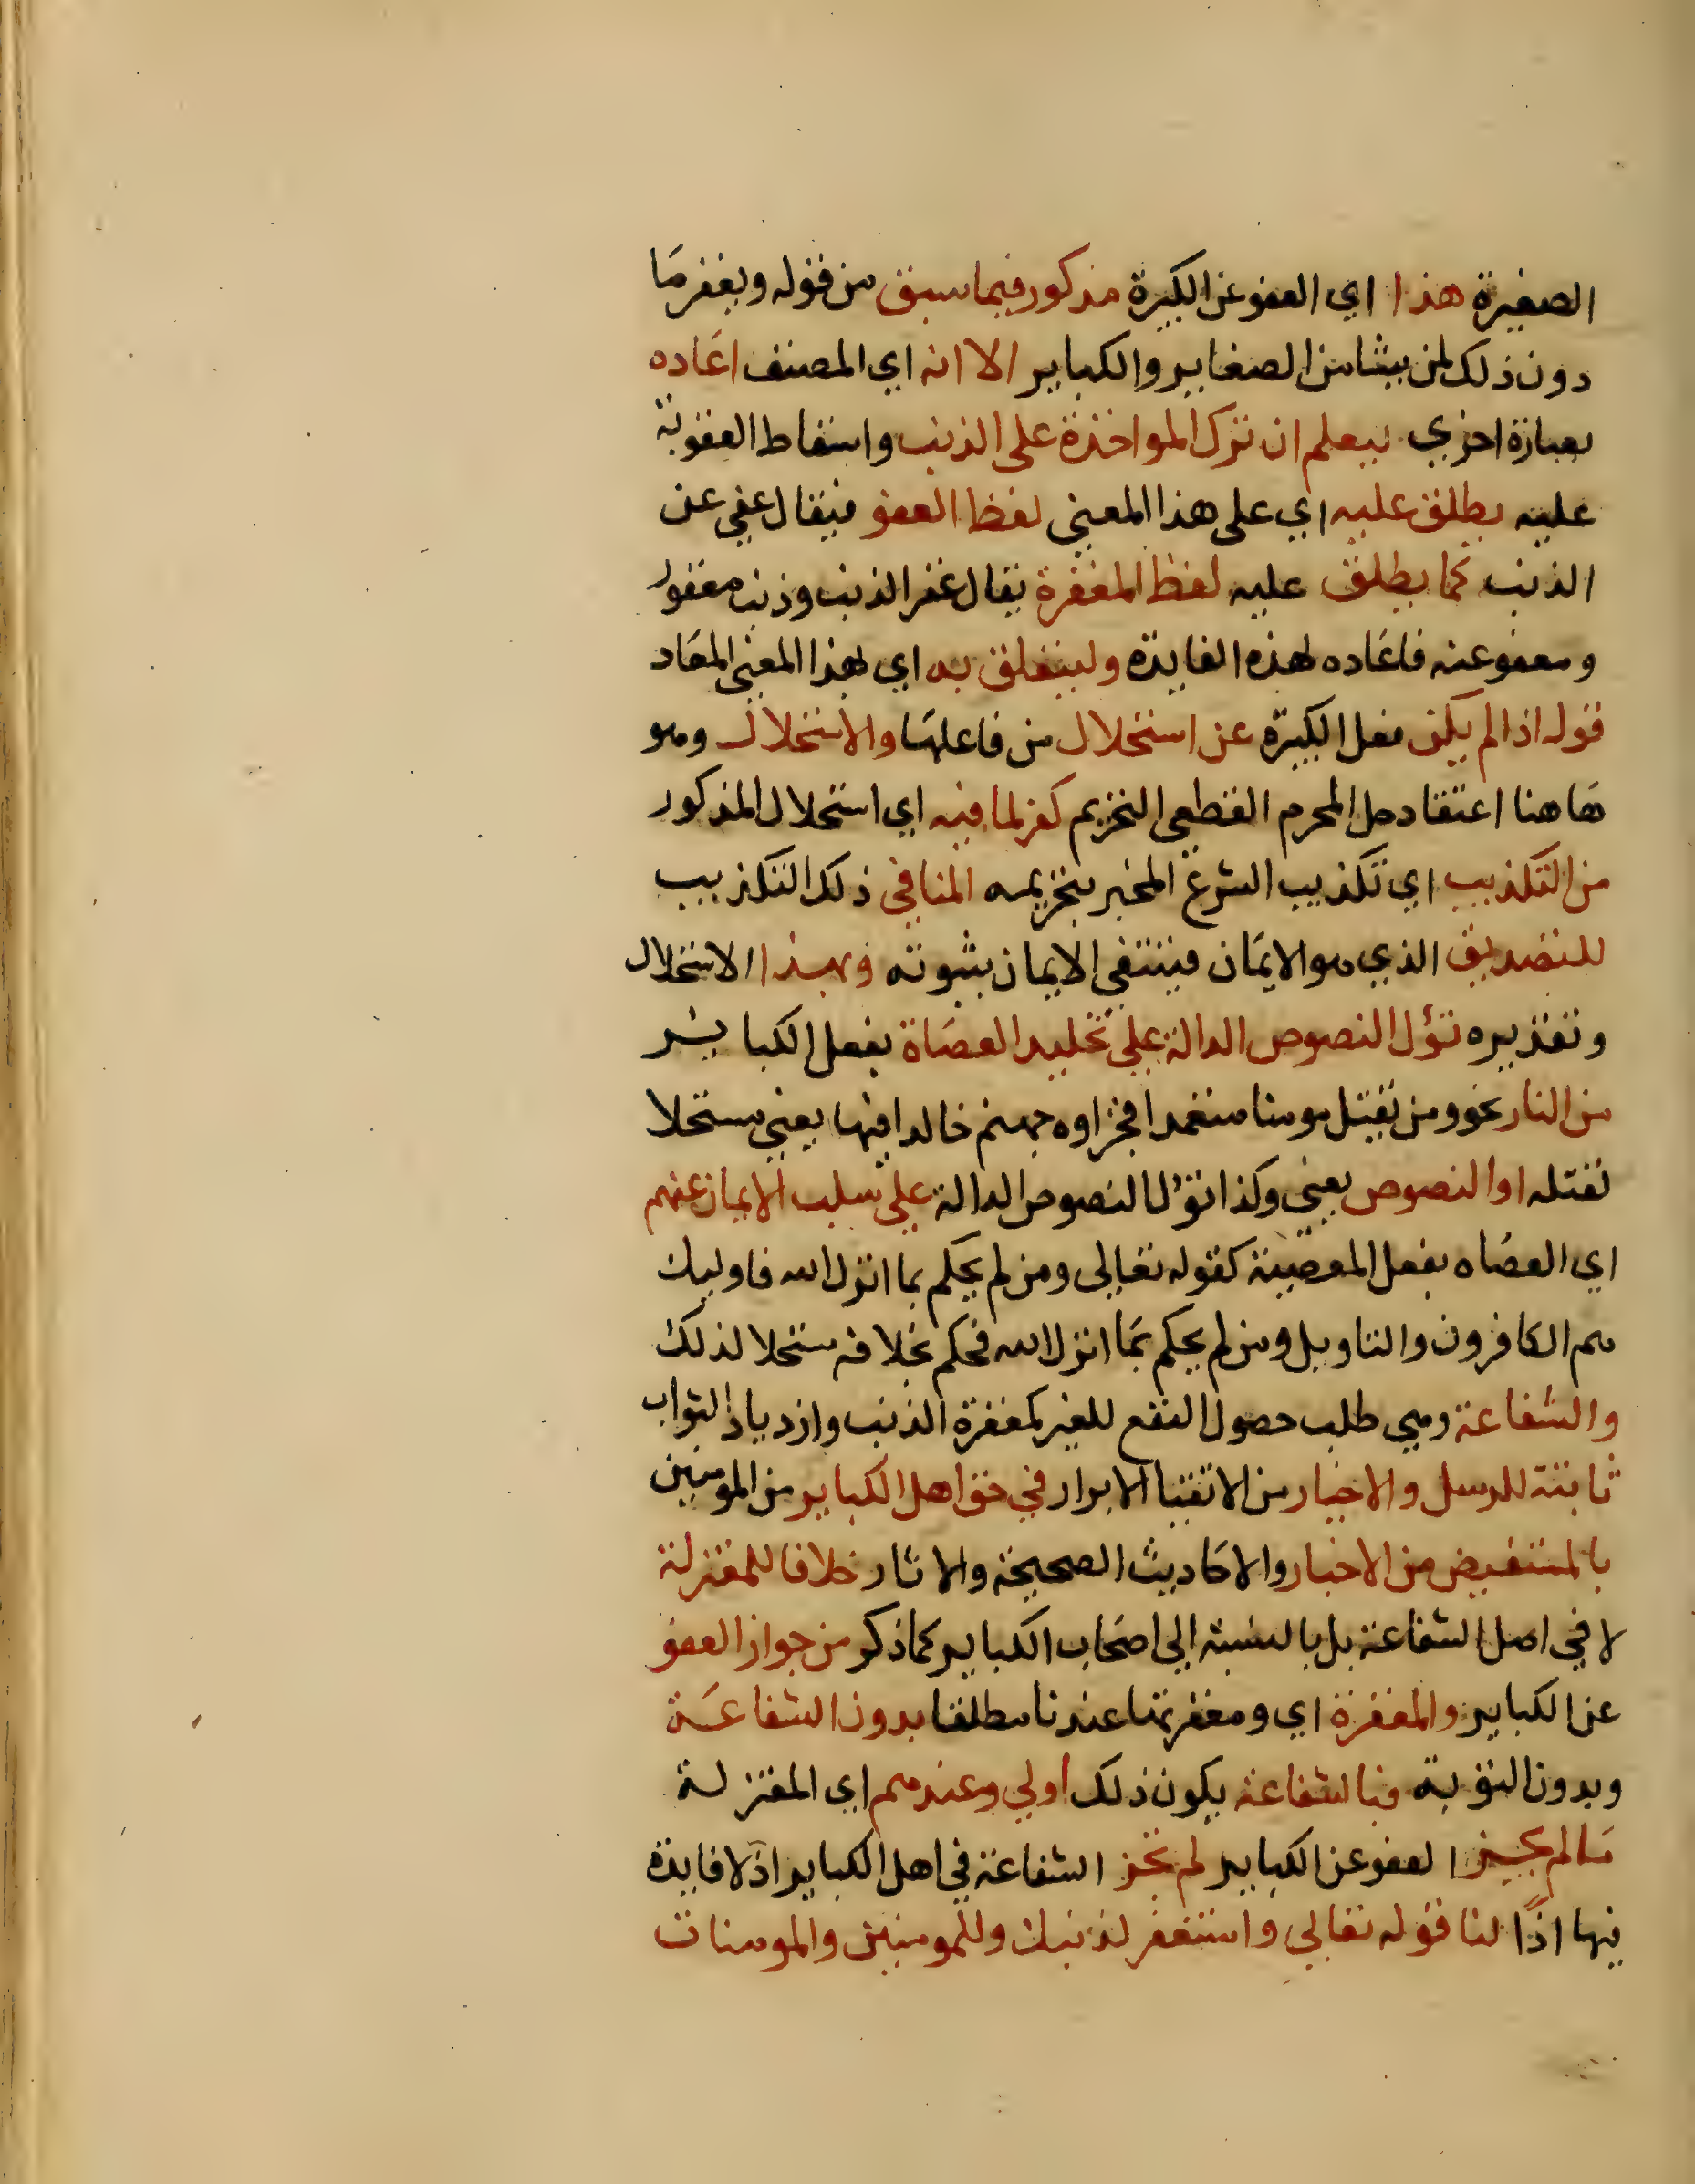 الصغيرة هذا اي العفو عن الكبيرة مذكور فيما سبق من قوله ويغفر ما
دون ذلك لمن يشا من الصغاير والكباير الا انه اي المصنف اعاده
بعبارة اخري ليعلم ان ترك المواخذة على الذنب واسقاط العقوبة
عليه يطلق عليه اي على هذا المعني لفظ العفو فيقال عفي عن
الذنب كما يطلق عليه لفظ المغفرة يقال غفر الذنب وذنب مغفور
ومعفو عنه فاعاده لهذه الفايدة وليتعلق به اي بهذا المعني المعاد
قوله اذا لم يكن فعل الكبيرة عن استحلال من فاعلها والاستحلال وهو
هاهنا اعتقاد حل المحرم القطعي التحريم كفر لما فيه اي استحلال المذكور
من التكذيب اي تكذيب الشرع المخبر بتحريمه المنافي ذلك التكذيب
للتصديق الذي هو الايمان فينتفي الايمان بثبوته وبهذا الاستحلال
وتقديره تؤل النصوص الدالة علي تخليد العصاة بفعل الكبائر
من النار نحو ومن يقتل مومنا متعمدا فجزاوه جهنم خالدا فيها يعني مستحلا
لقتله او النصوص يعني وكذا تؤل النصوص الدالة علي سلب الايمان عنهم
اي العصاه بفعل المعصية كقوله تعالى ومن لم يحكم بما انزل الله فاوليك
هم الكافرون والتاويل ومن لم يحكم بما انزل الله فحكم بخلافه مستحلا لذلك
والشفاعة وهي طلب حصول النفع للغير كمغفرة الذنب وازدياد الثواب
ثابتة للرسل والاخيار من الاتقيا الابرار في حق اهل الكباير من المومنين
بالمستفيض من الاخبار والاحاديث الصحيحة والاثار خلافا للمعتزلة
لا في اصل الشفاعة بل بالنسبة الي اصحاب الكباير كما ذكر من جواز العفو
عن الكباير والمغفرة اي ومغفرتها عندنا مطلقا بدون الشفاعة
وبدون التوبة فبالشفاعة يكون ذلك اولي وعندهم اي المعتزلة
مالم يجز العفو عن الكباير لم تجز الشفاعة في اهل الكباير اذ لا فايدة
فيها اذًا لنا قوله تعالي واستغفر لذنبك وللمومنين والمومنات